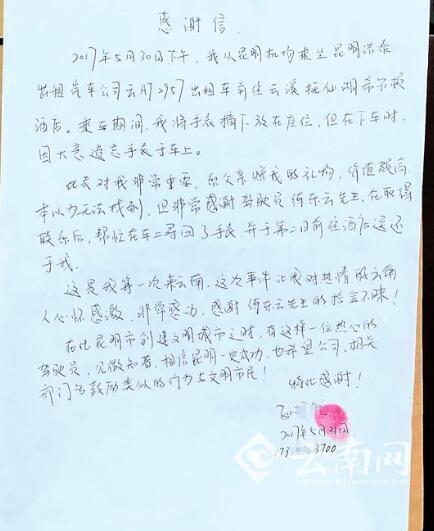 感谢信
2017年5月30日下午，我从昆明机场乘坐昆明浩泰
出租汽车公司云A7 2957出租车前往玉溪抚仙湖希尔顿
酒店。乘车期间，我将手表摘下放在座位，但在下车时，
因大意遗忘手表于车上。
此表对我非常重要，系父亲赠我的礼物，价值颇高，
本以为无法找到，但非常感谢驾驶员 东云先生，在取得
联系后，帮忙在车上寻回了手表并于第二日前往酒店送还
于我。
这是我第一次来云南，这次事件让我对热情的云南
人心怀感激，非常感动，感谢 东云先生的拾金不昧！
在此昆明市创建文明城市之时，有这样一位热心的
驾驶员，见微知著，相信昆明一定成功，也希望公司，相关
部门多鼓励类似的行为与文明市民！
特此感谢！
2017年5月31日
173 3700
云南网
WWW.YUNNAN.CN